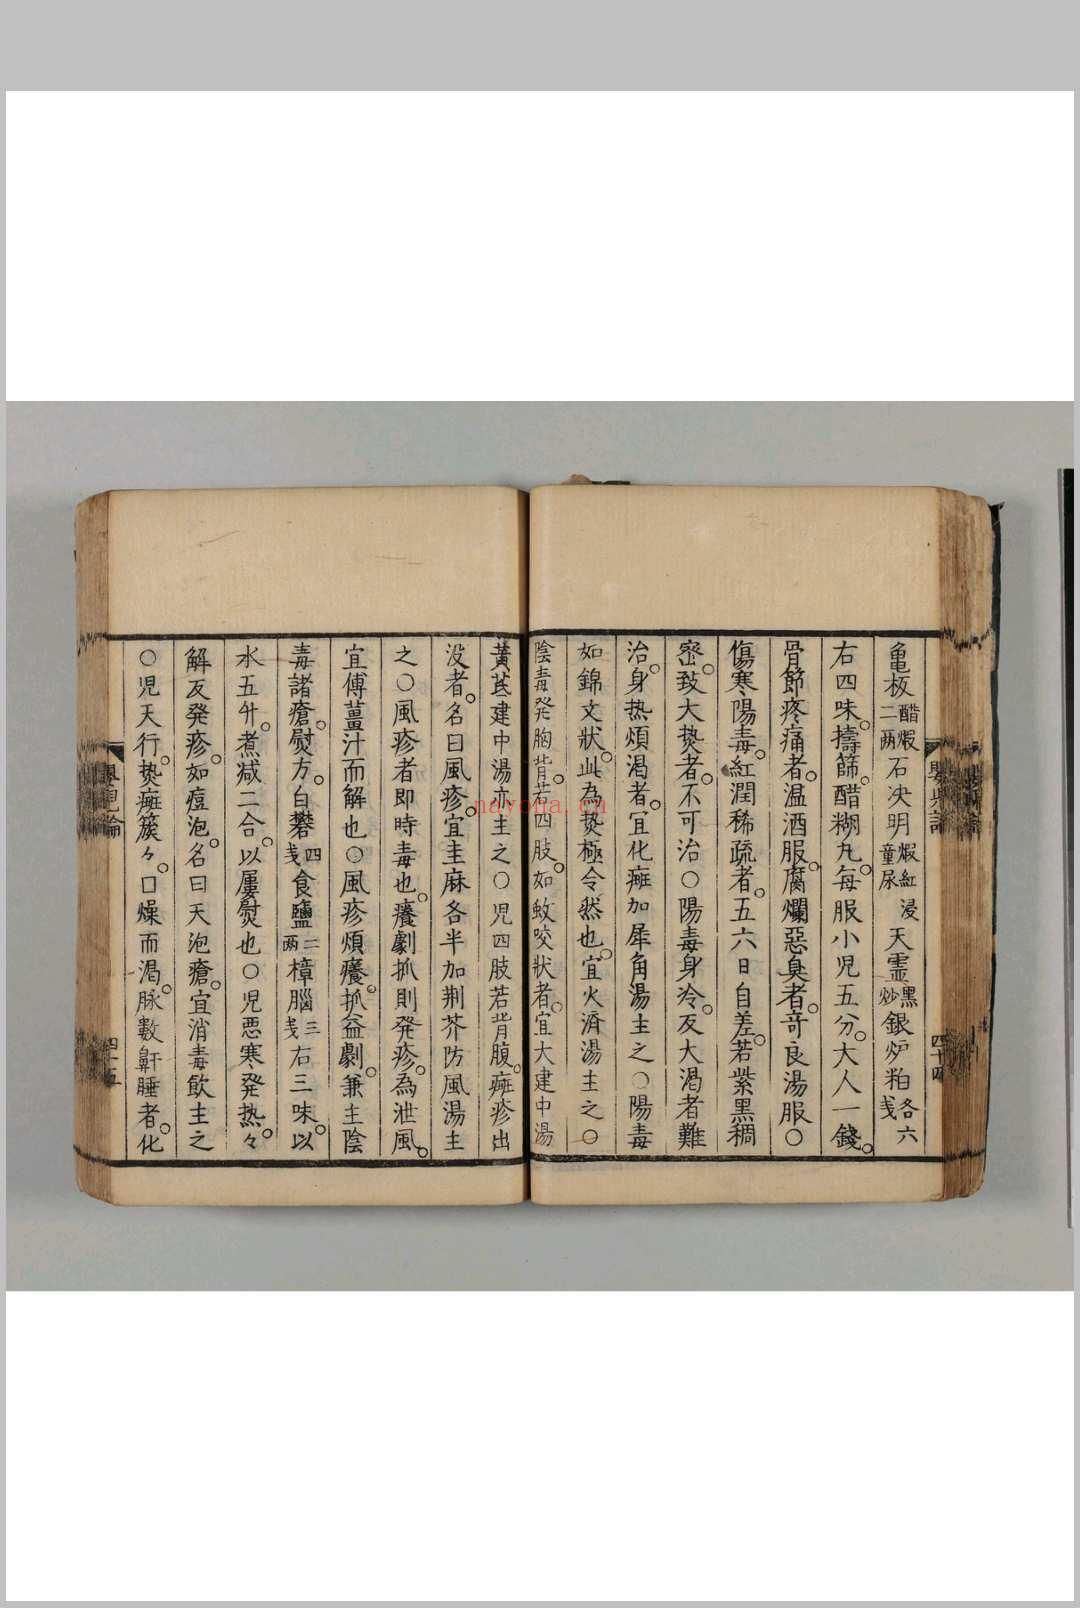 亀板醋煆二两石决明煆紅童尿浸天霊黒炒銀炉粕各六戔
右四味。擣篩。醋糊丸。每服小児五分。大人一錢。
骨節疼痛者。温酒服。腐爛惡臭者。竒良湯服○
傷寒陽毒。紅潤稀疏者。五六日自差。若紫黒稠
密。致大𤍠者。不可治○陽毒身冷。反大渴者難
治。身热煩渴者。宜化癍加犀角湯主之○陽毒
如錦文狀。此為𤍠極令然也。宜火濟湯主之○
陰毒発胸背。若四肢。如蚊咬狀者。宜大建中湯
黃芪建中湯亦主之○児四肢若背腹。癍疹出
没者。名曰風疹。宜圭麻各半加荆芥防風湯主
之○風疹者即時毒也。癢劇抓則発疹。為泄風。
宜傅薑汁而解也○風疹煩癢。抓益劇。兼主陰
毒諸瘡。熨方。白礬四戔食鹽二两樟腦三戔右三味。以
水五升。煮减二合。以屢熨也○児惡寒発热。々
解反発疹。如痘泡。名曰天泡瘡。宜消毒飲主之
○児天行。𤍠癍簇々。口燥而渴。脉數鼾睡者。化
嬰児論
四十四
嬰児論
四十五
nayona.cn